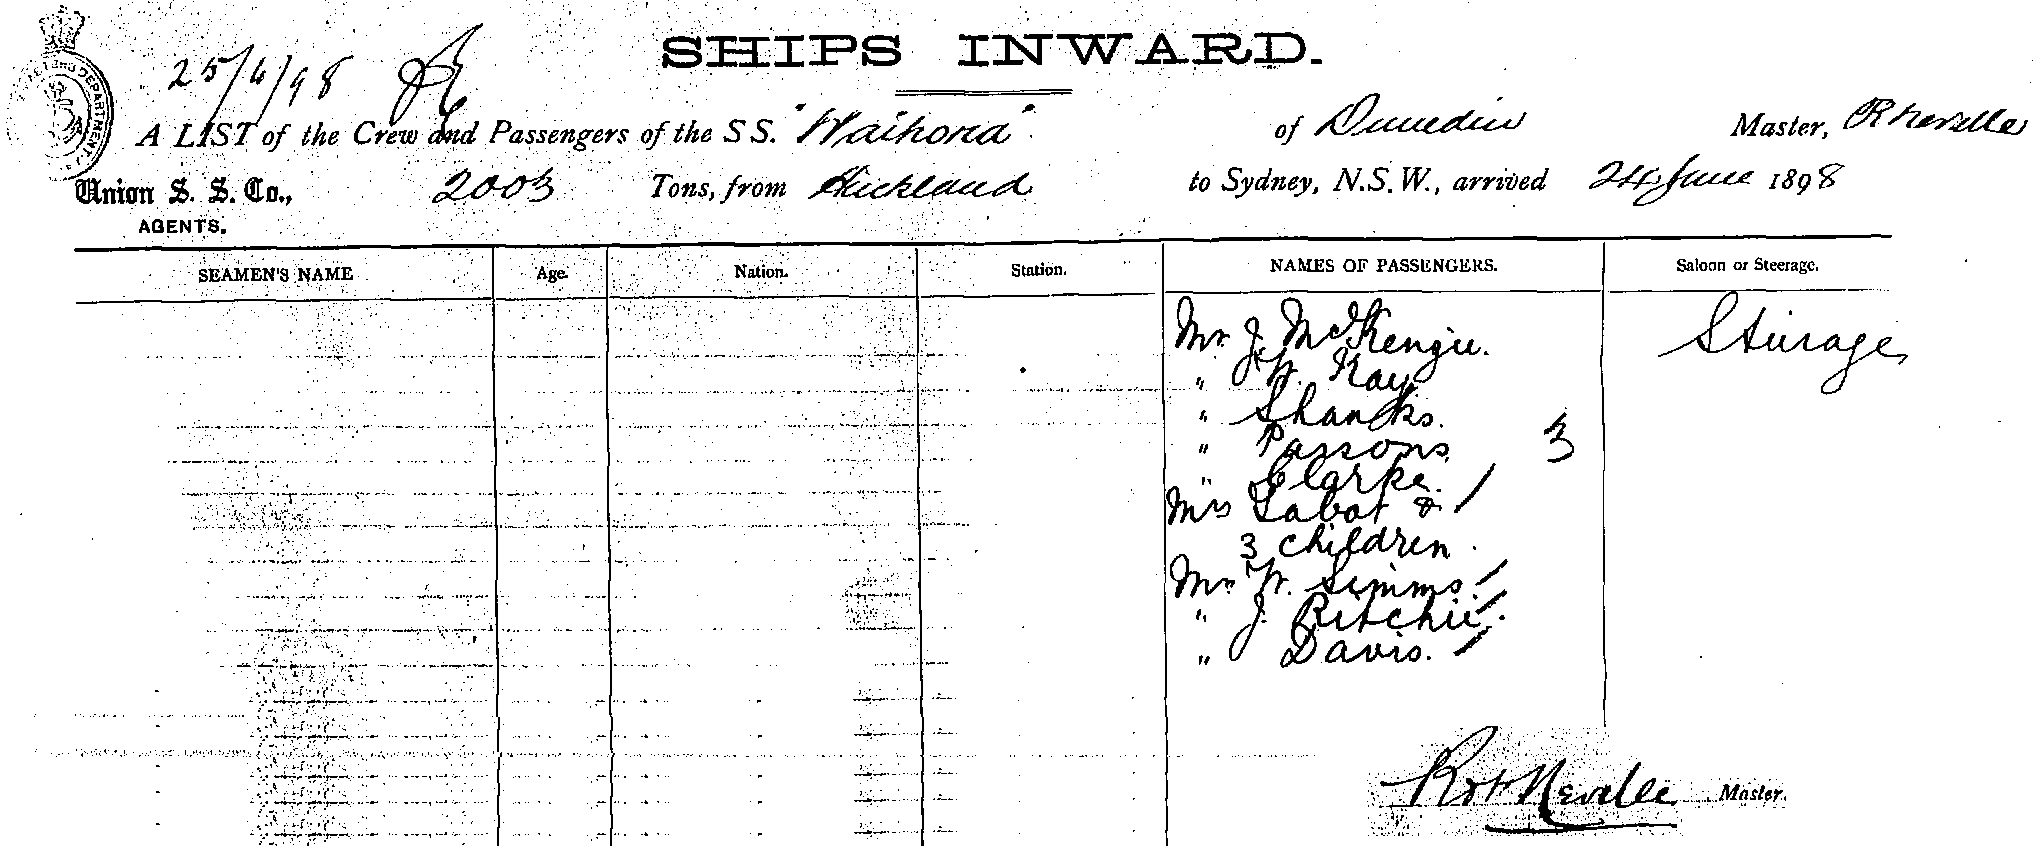 SHIPS INWARD.
25/6/98
A LIST of the Crew and Passengers of the SS. "Waihora" of Dunedin Master, R Neville
Union S. S. Co., 2003 Tons, from Auckland to Sydney, N.S.W., arrived 24 June 1898
AGENTS.
SEAMEN'S NAME Age. Nation. Station. NAMES OF PASSENGERS. Saloon or Steerage.
Mr J. McKenzie. Steerage
" W. Kay
" Shanks.
" Parsons 3
" Clarke.
Mrs Labat & /
3 children.
Mr W. Simms. /
" J. Ritchie /.
" Davis. /
Robt Neville Master.